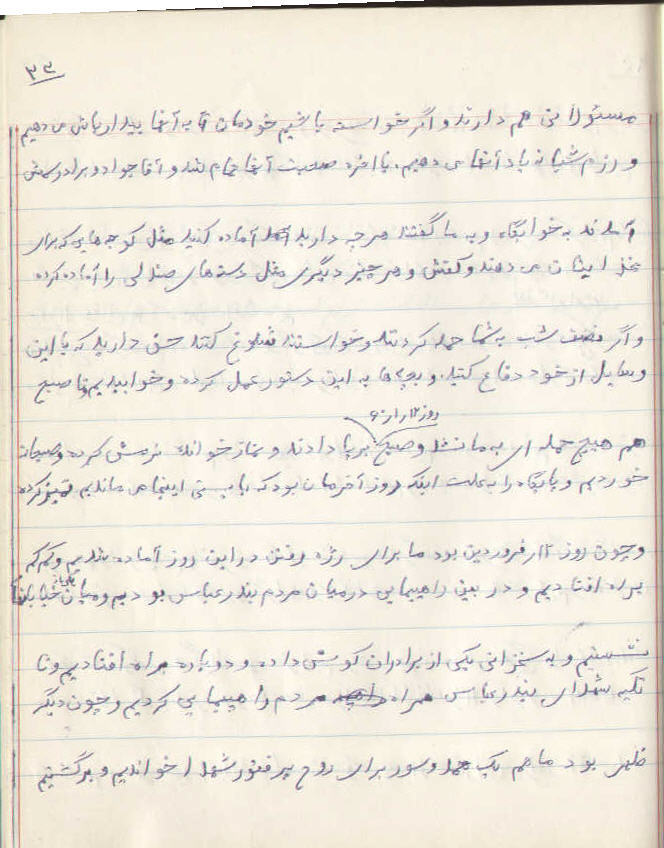 ۳۳
مسئولانی هم دارند و اگر خواسته باشیم خودمان به آنها بیدارباش می دهیم
و رزم شبانه یاد آنها می دهیم. بالاخره صحبت آنها تمام شد و آقا جواد و برادر
آمدند به خوابگاه و به ما گفتند هر چه دارید آماده کنید مثل کوچه هایی که برای
ایشان می دهند و کفش و هر چیز دیگری مثل دسته های صندلی را آماده کرده
و اگر نصف شب به شما حمله کردند و خواستند شلوغ کنند حق دارید که با این
وسایل از خود دفاع کنید. و بچه ها به این دستور عمل کرده و خوابیدیم و تا صبح
روز ۱۲/۱/۶۰
هم هیچ حمله ای به ما نشد و صبح برپا دادند و نماز خوانده نرمش کرده و صبحانه
خوردیم و پایگاه را به علت اینکه روز آخرمان بود که بایستی اینجا می ماندیم تمیز کرده
و چون روز ۱۲ فروردین بود ما برای رژه رفتن در این روز آماده شدیم و کم کم
براه افتادیم و در بین راهپیمایی درمیان مردم بندرعباس بودیم و میان خیابانها
نشستیم و به سخنرانی یکی از برادران گوش داده و دوباره براه افتادیم و تا
تکیه شهدای بندرعباس همراه مردم راهپیمایی کردیم و چون دیگر
ظهر بود ما هم یک حمد و سوره برای روح پر فتوح شهدا خواندیم و برگشتیم